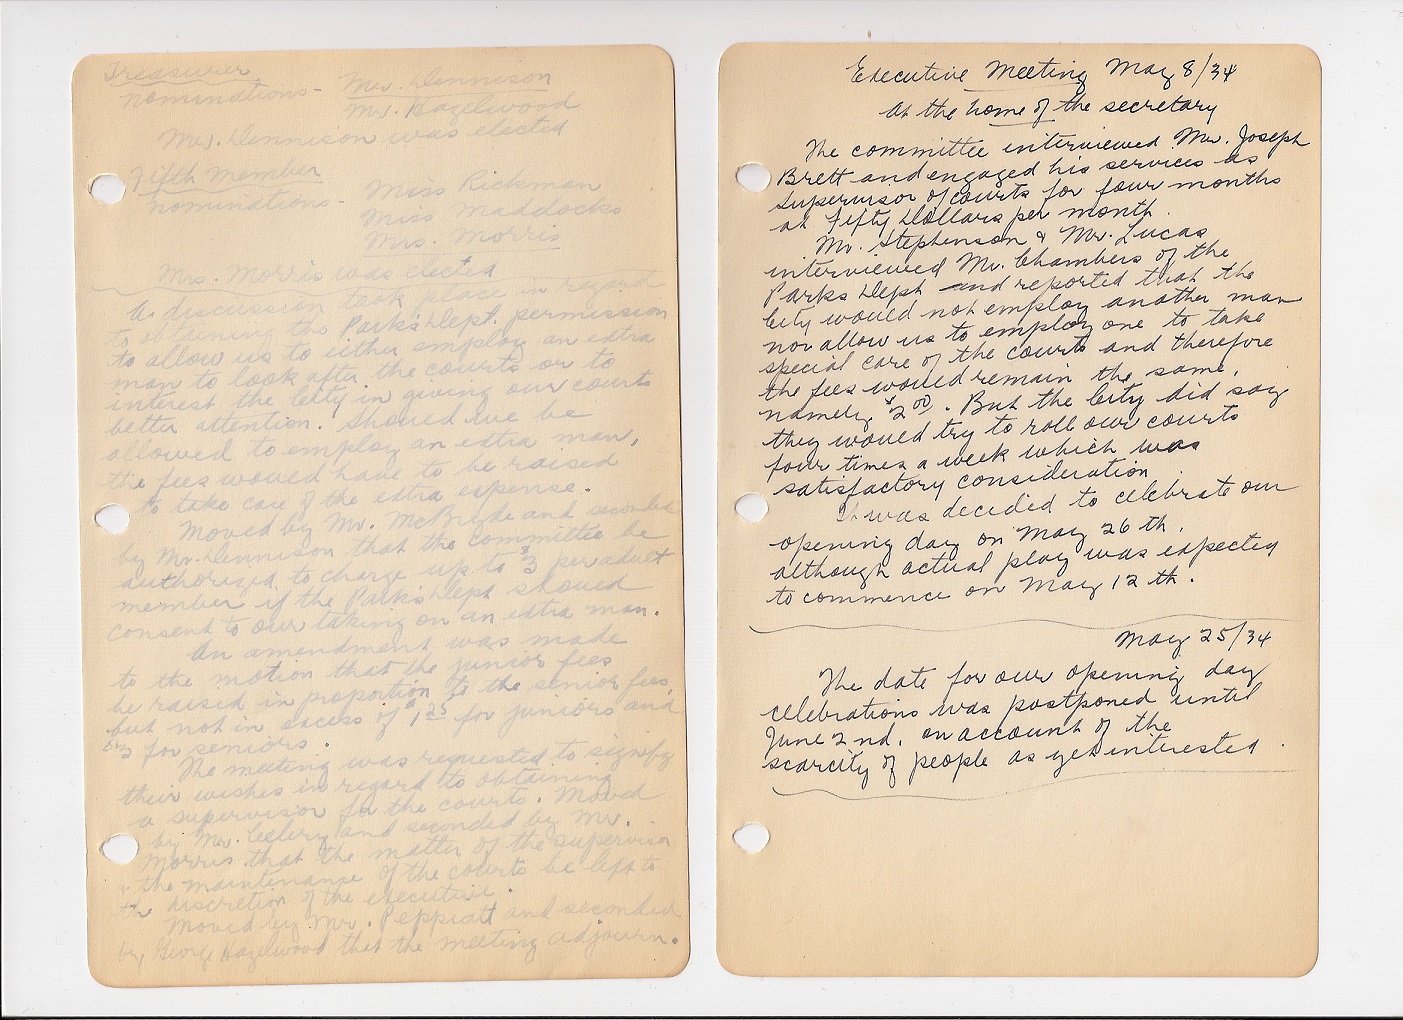 Treasurer
nominations - Mr. Dennison
Mr. Hazelwood
Mr. Dennison was elected
Fifth Member
nominations - Miss Rickman
Miss Maddocks
Mrs. Morris
Mrs. Morris was elected
A discussion took place in regard
to obtaining the Parks Dept. permission
to allow us to either employ an extra
man to look after the courts or to
interest the City in giving our courts
better attention. Should we be
allowed to employ an extra man,
the fees would have to be raised
to take care of the extra expense.
Moved by Mr. McBryde and seconded
by Mr. Dennison that the committee be
authorized to charge up to $3 per adult
member if the Parks Dept should
consent to our taking on an extra man.
An amendment was made
to the motion that the junior fees
be raised in proportion to the senior fees,
but not in excess of $1.25 for juniors and
$3 for seniors.
The meeting was requested to signify
their wishes in regard to obtaining
a supervisor for the courts. Moved
by Mr. Celery and seconded by Mr.
Morris that the matter of the supervisor
& the maintenance of the courts be left to
the discretion of the executive.
Moved by Mr. Peppiatt and seconded
by George Hazelwood that the meeting adjourn.
Executive Meeting May 8/34
At the home of the secretary
The committee interviewed Mr. Joseph
Brett and engaged his services as
supervisor of courts for four months
at Fifty Dollars per month.
Mr. Stephenson & Mr. Lucas
interviewed Mr. Chambers of the
Parks Dept and reported that the
City would not employ another man
nor allow us to employ one to take
special care of the courts and therefore
the fees would remain the same,
namely $2.00. But the City did say
they would try to roll our courts
four times a week which was
satisfactory consideration
It was decided to celebrate our
opening day on May 26 th.
although actual play was expected
to commence on May 12 th.
May 25/34
The date for our opening day
celebrations was postponed until
June 2 nd. on account of the
scarcity of people as yet interested.